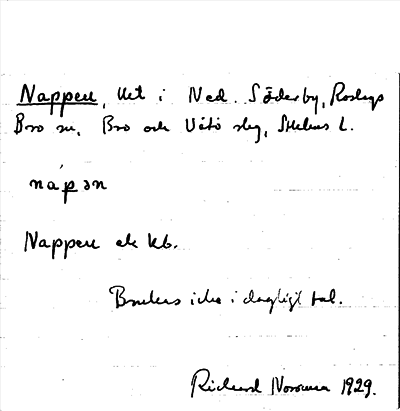 Nappen, Utt i Ned. Söderby, Roslags
Bro sn, Bro och Vätö slg, Sthlms L.
nápən
Nappen ek kb.
Brukas icke i dagligt tal.
Richard 1929.